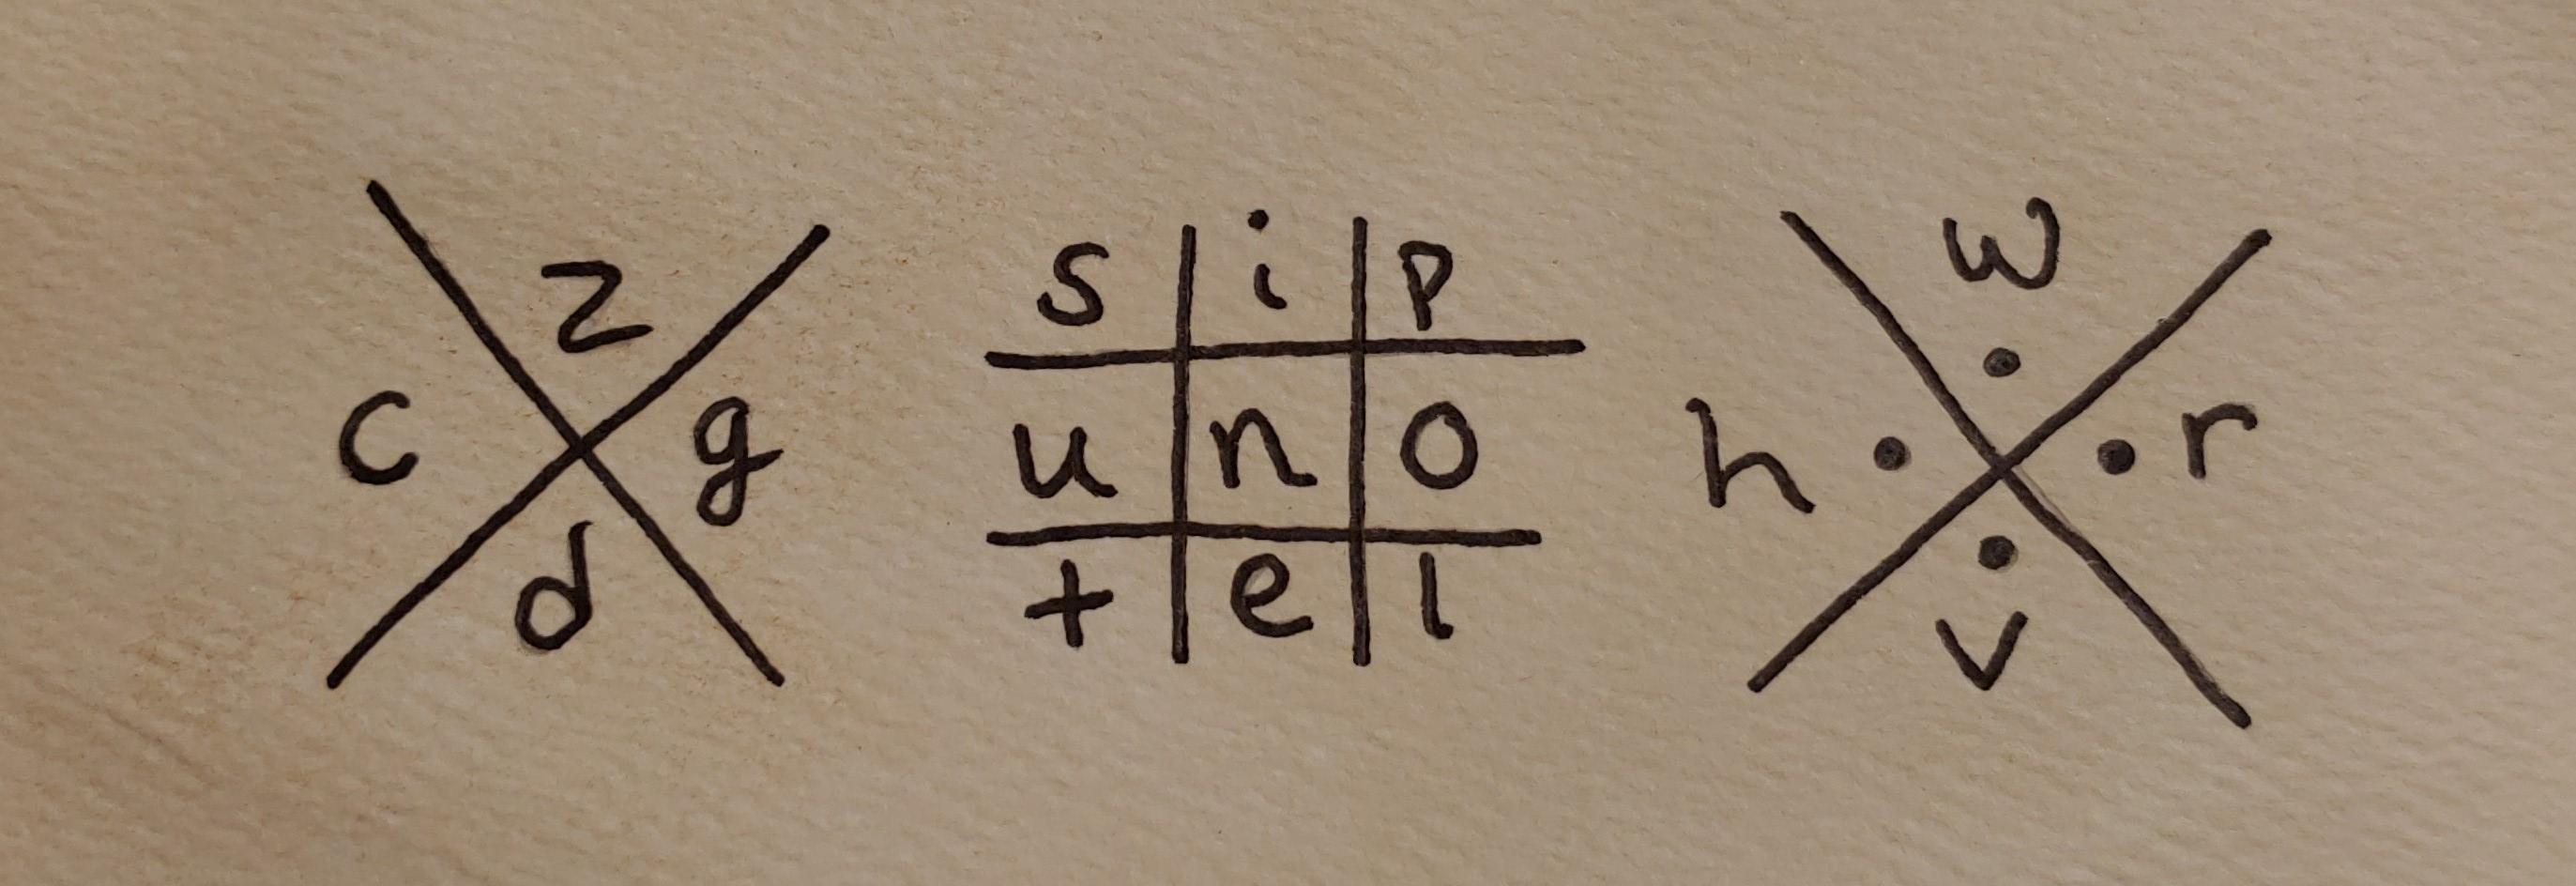 z
c g
d
s i p
u n o
t e l
w
h r
v